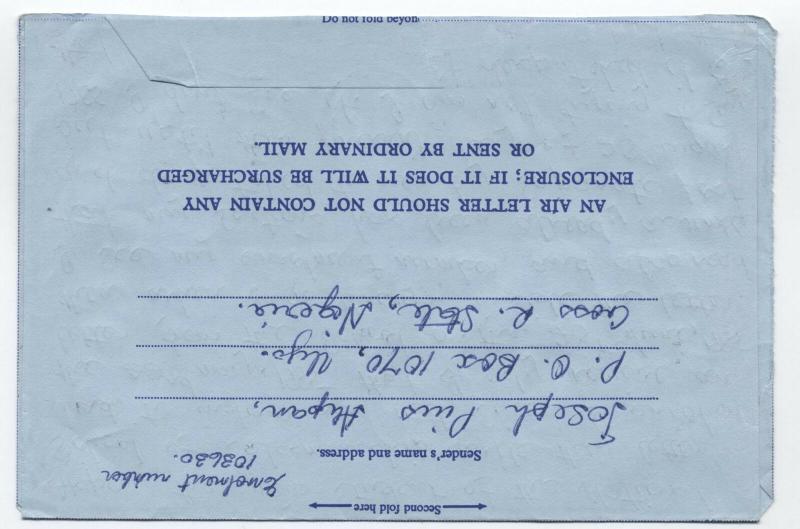 Second fold here
Enrolment number
103630.
Sender's name and address.
Joseph Pius Akpan,
P. O. Box 1070, Uyo.
Cross R. State, Nigeria.
AN AIR LETTER SHOULD NOT CONTAIN ANY
ENCLOSURE; IF IT DOES IT WILL BE SURCHARGED
OR SENT BY ORDINARY MAIL.
Do not fold beyon